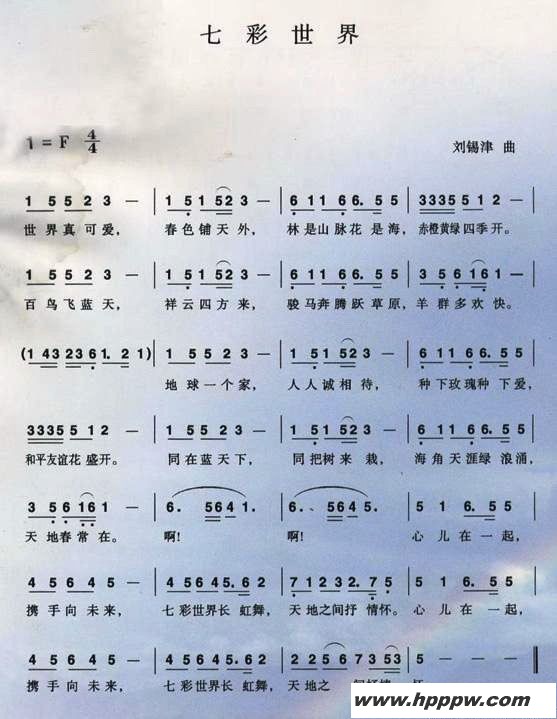 七彩世界
1 = F 4/4
刘锡津 曲
1 5 5 2 3 — | 1 51 52 3 — | 6 11 66. 55 | 3335 512 — |
世界真可爱， 春色铺天外， 林是山脉花是海， 赤橙黄绿四季开。
1 5 5 2 3 — | 1 51 52 3 — | 6 11 66. 55 | 3 56 161 — |
百鸟飞蓝天， 祥云四方来， 骏马奔腾跃草原， 羊群多欢快。
(1 43 2361. 21) | 1 5 5 2 3 — | 1 51 52 3 — | 6 11 66. 55 |
地球一个家， 人人诚相待， 种下玫瑰种下爱，
3335 512 — | 1 5 5 2 3 — | 1 51 52 3 — | 6 11 66. 55 |
和平友谊花盛开。 同在蓝天下， 同把树来栽， 海角天涯绿浪涌，
3 56 161 — | 6. 5641. | 6. 5645. | 5 1 6. 5 |
天地春常在。 啊！ 啊！ 心儿在一起，
4 5 6 5 — | 4 5645. 62 | 71232. 75 | 5 1 6. 5 |
携手向未来， 七彩世界长虹舞， 天地之间抒情怀。 心儿在一起，
4 5 6 5 — | 4 5645. 62 |
携手向未来， 七彩世界长虹舞， 天地之
www.hpppw.com